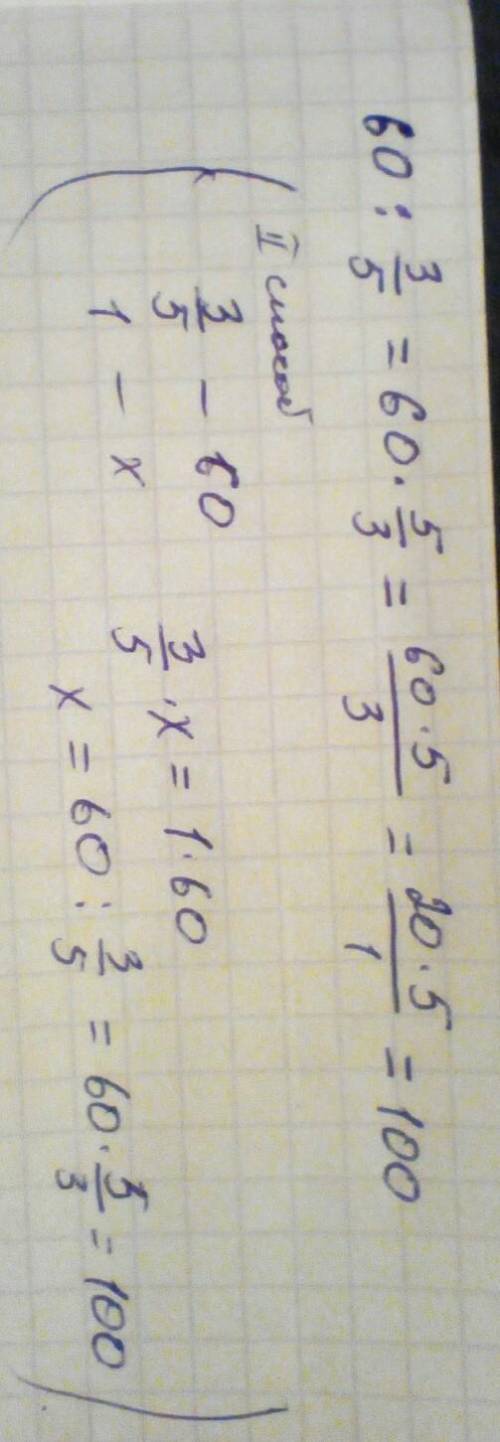 60 : 3/5 = 60 · 5/3 = 60·5/3 = 20·5/1 = 100
II способ
3/5 – 60
1 – x
3/5 · x = 1·60
x = 60 : 3/5 = 60 · 5/3 = 100